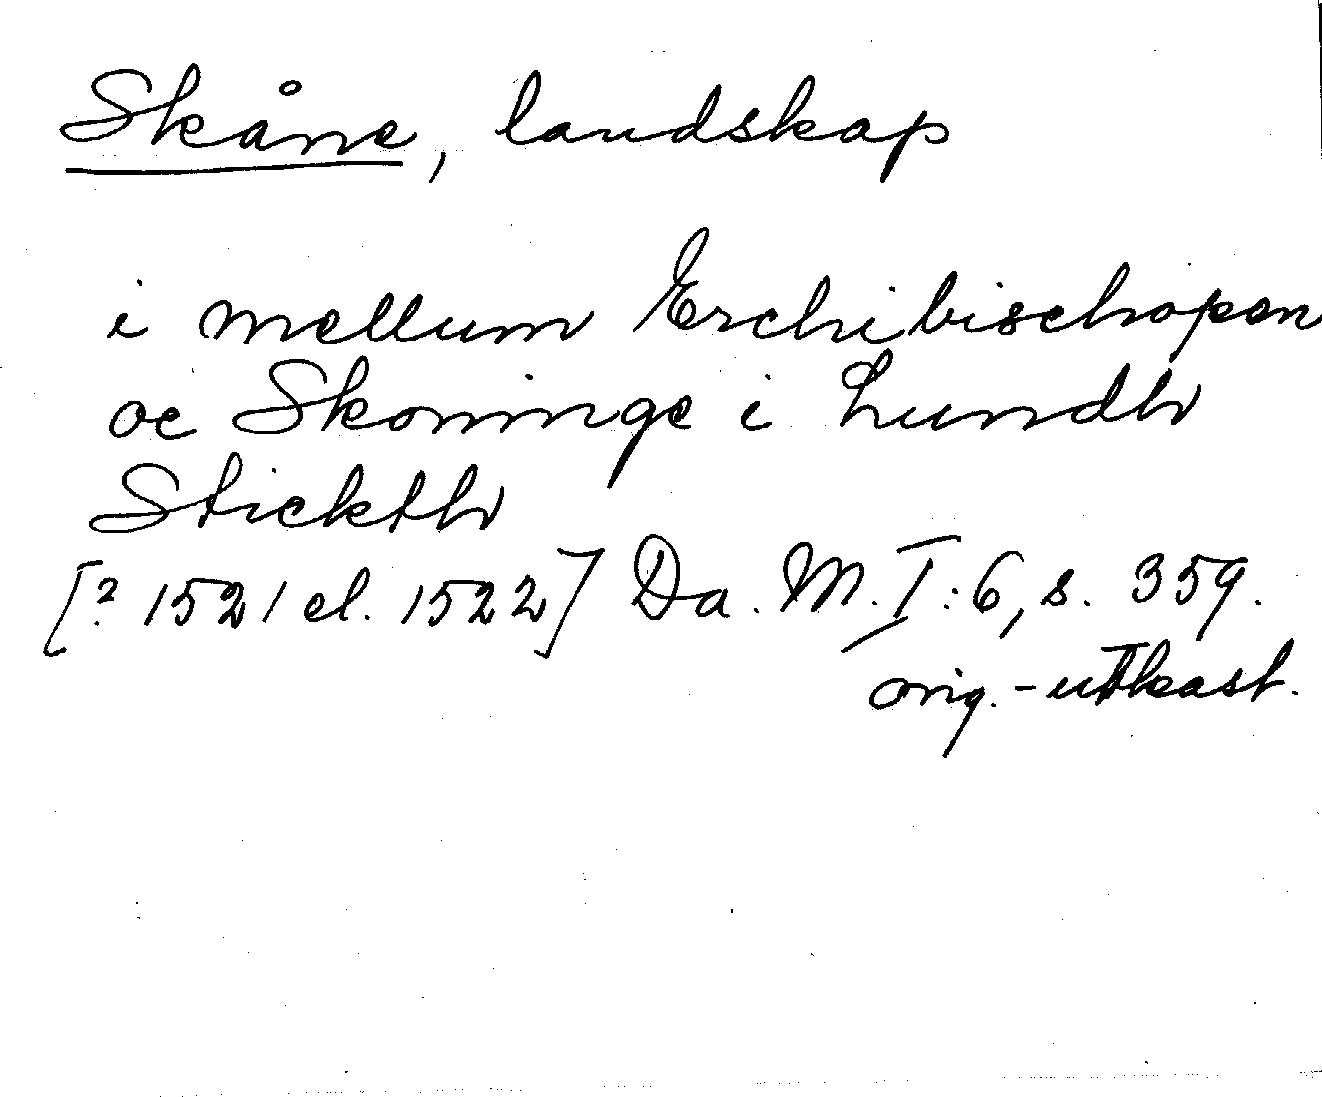 Skåne, landskap
i mellum Erchibischopen
oc Skoninge i Lundh
Stickth
[? 1521 el. 1522] Da. M. I:6, s. 359.
orig.-utkast.